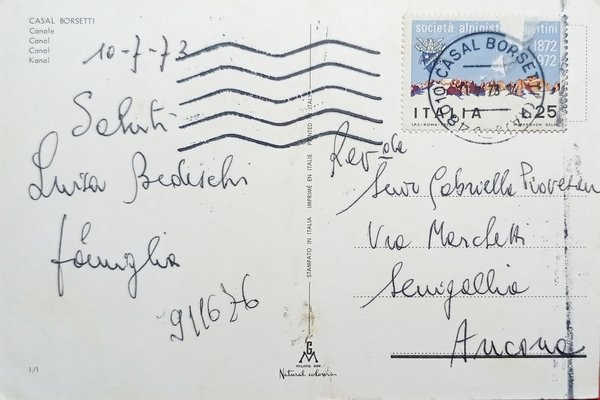 CASAL BORSETTI
Canale
Canal
Canal
Kanal
10-7-73
Saluti
Luisa Bedeschi
famiglia
911676
1/1
STAMPATO IN ITALIA IMPRIMÉ EN ITALIE PRINTED ITALY
GM
MILANO DEP.
Natural colors
società alpinisti entini
1872
1972
ITALIA L.25
CASAL BORSETTI
Rev.da
Suor Gabriella
Via Marchetti
Senigallia
Ancona